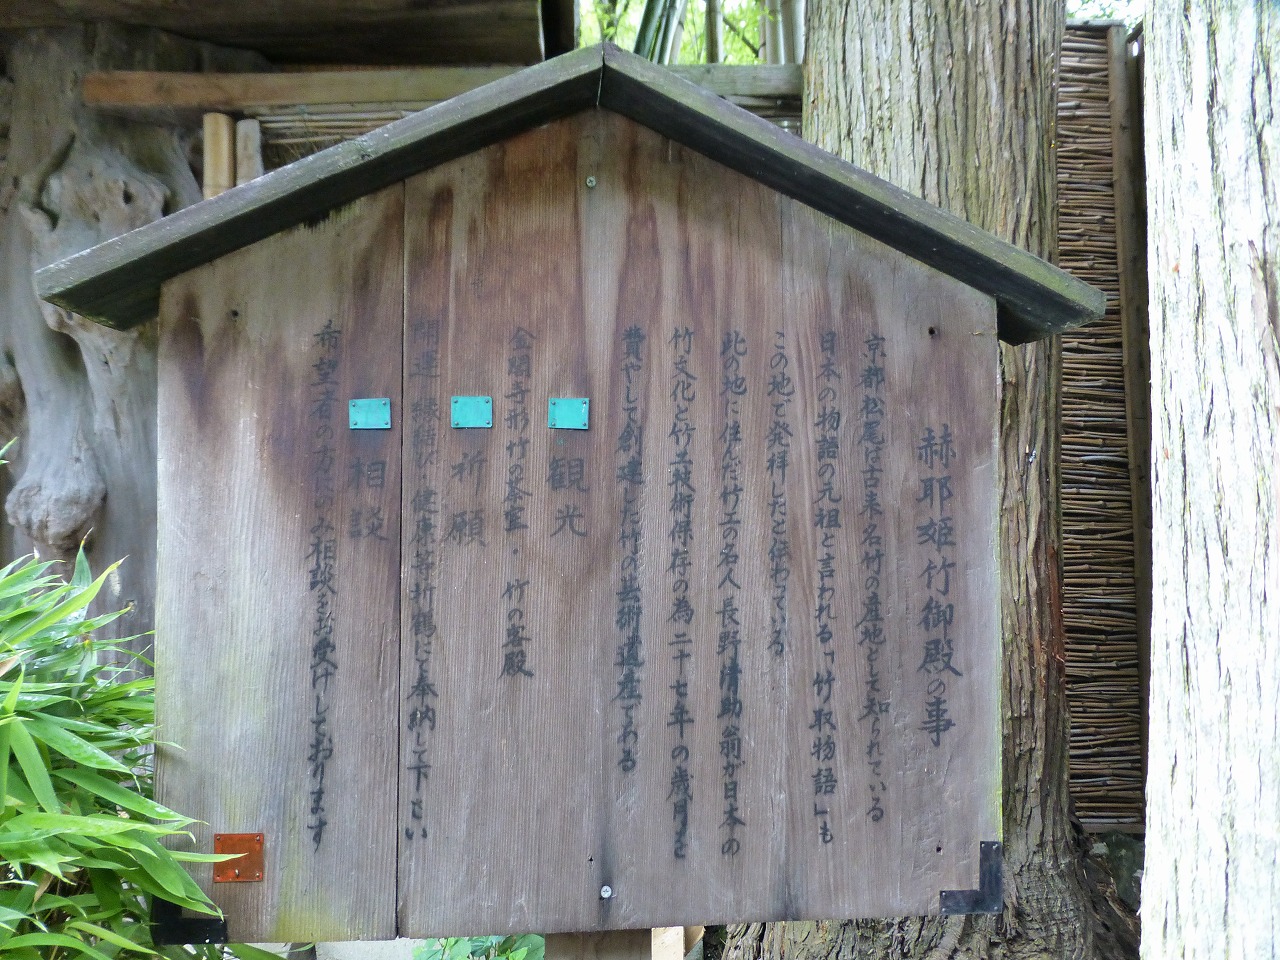 赫耶姫竹御殿の事
京都松尾は古来名竹の産地として知られている
日本の物語の元祖と言われる「竹取物語」も
この地で発祥したと伝わっている
此の地に住んだ竹工の名人長野清助翁が日本の
竹文化と竹工技術保存の為二十七年の歳月を
費やして創建した竹の芸術遺産である
観光
金閣寺形竹の茶室・竹の客殿
祈願
開運・縁結び・健康等折鶴にて奉納して下さい
相談
希望者の方にのみ相談をお受けしております